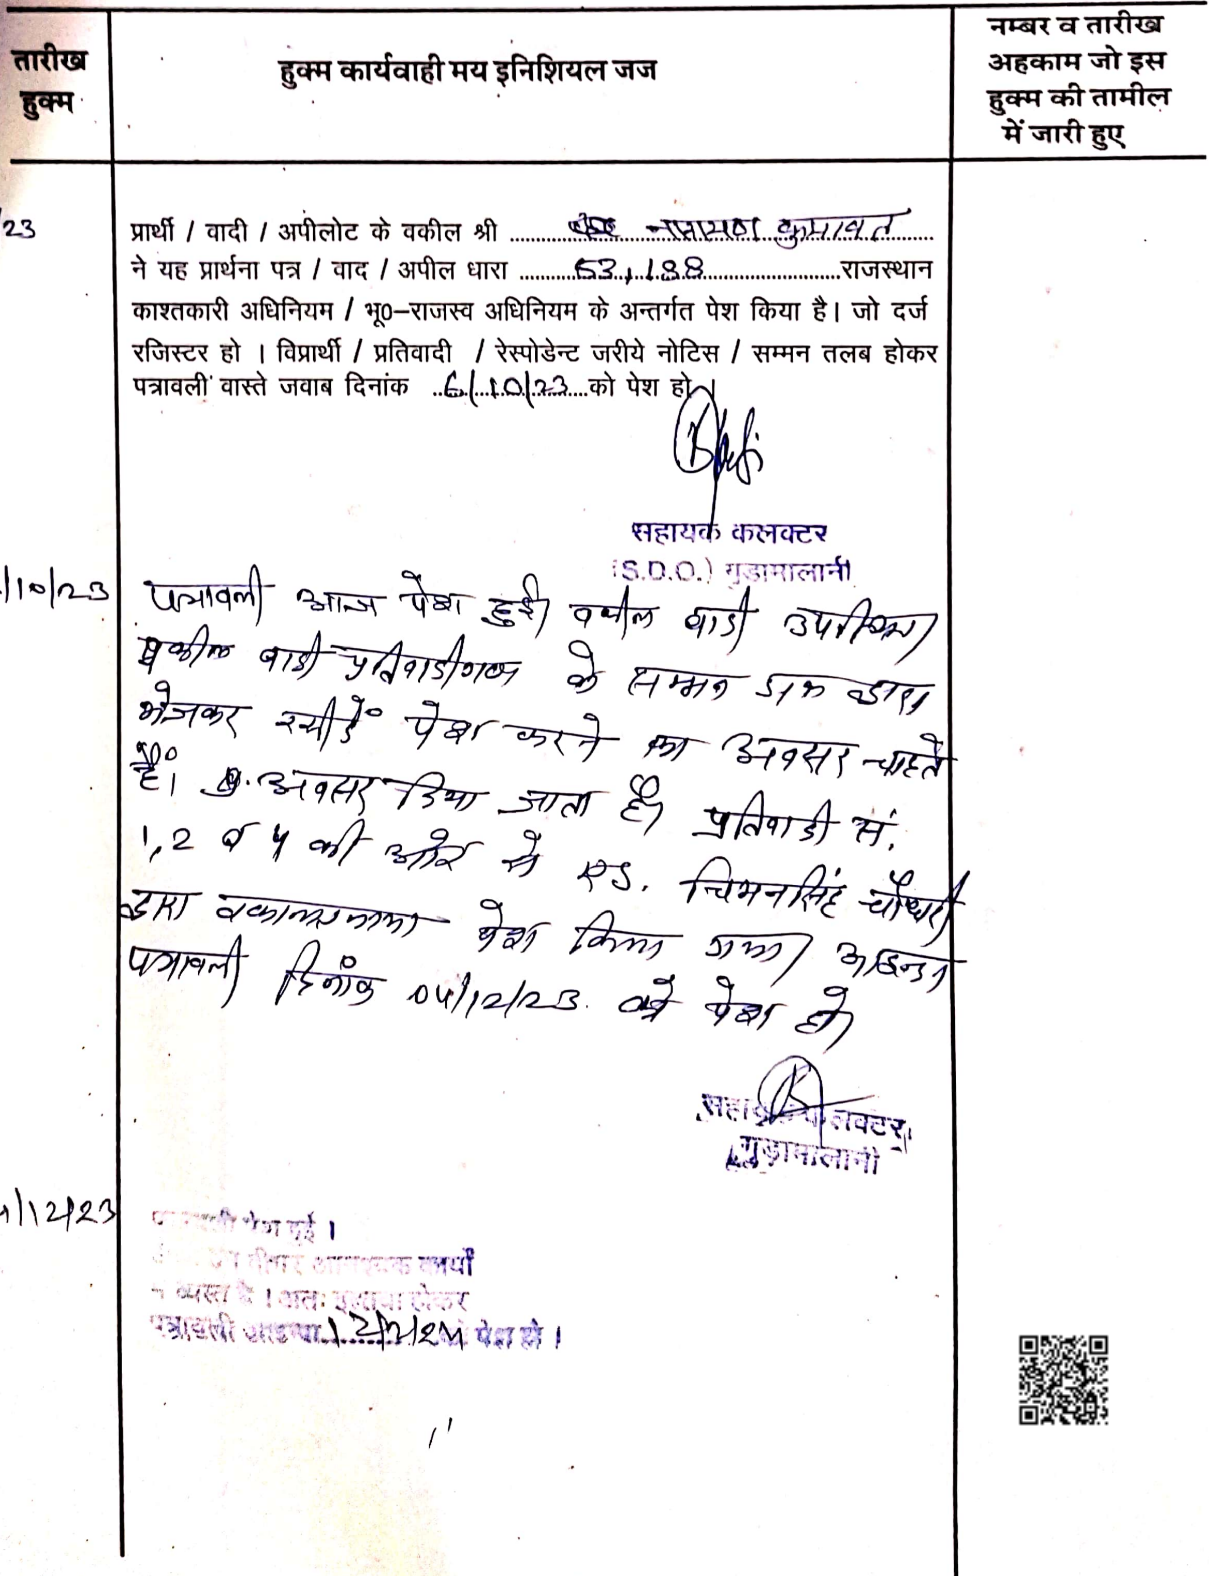 तारीख
हुक्म
हुक्म कार्यवाही मय इनिशियल जज
नम्बर व तारीख
अहकाम जो इस
हुक्म की तामील
में जारी हुए
/23
प्रार्थी / वादी / अपीलोट के वकील श्री नारायण कुमावत
ने यह प्रार्थना पत्र / वाद / अपील धारा 53,188 राजस्थान
काश्तकारी अधिनियम / भू०-राजस्व अधिनियम के अन्तर्गत पेश किया है। जो दर्ज
रजिस्टर हो । विप्रार्थी / प्रतिवादी / रेस्पोडेन्ट जरीये नोटिस / सम्मन तलब होकर
पत्रावली वास्ते जवाब दिनांक 6/10/23 को पेश हो
सहायक कलक्टर
(S.D.O.) गुडामालानी
/10/23
पत्रावली आज पेश हुई। वकील वादी उपस्थित।
वकील वादी प्रतिवादीगण के सम्मन डाक द्वारा
भेजकर रसीदें पेश करने का अवसर चाहते
हैं। अवसर दिया जाता है। प्रतिवादी सं.
1,2 व 4 की ओर से एड. चिमनसिंह चौधरी
द्वारा वकालतनामा पेश किया गया। आइन्दा
पत्रावली दिनांक 04/12/23. को पेश हो।
सहायक कलक्टर
गुड़ामालानी
/12/23
पत्रावली पेश हुई ।
आवश्यक कार्यों
व्यस्त है । अतः होकर
पत्रावली पेश हो ।